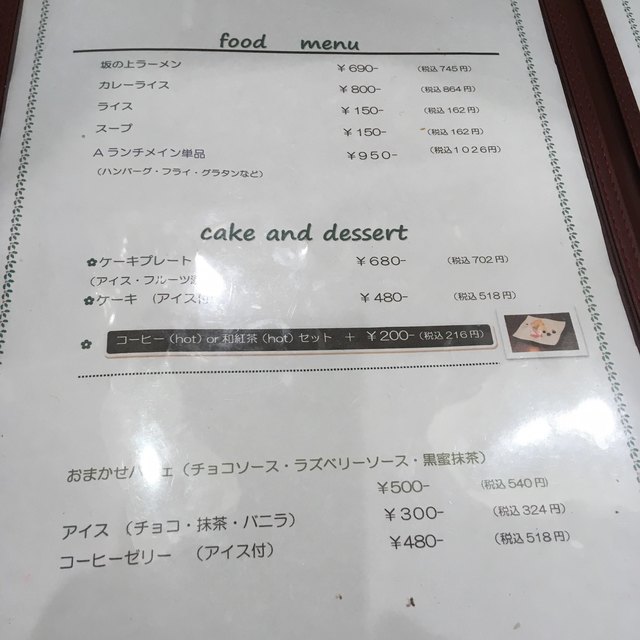 food menu
坂の上ラーメン ￥690- （税込745円）
カレーライス ￥800- （税込864円）
ライス ￥150- （税込162円）
スープ ￥150- （税込162円）
Aランチメイン単品 ￥950- （税込1026円）
（ハンバーグ・フライ・グラタンなど）
cake and dessert
✿ケーキプレート ￥680- （税込702円）
（アイス・フルーツ
✿ケーキ （アイス付 ￥480- （税込518円）
✿ コーヒー（hot）or 和紅茶（hot）セット ＋ ￥200-（税込216円）
おまかせパフェ（チョコソース・ラズベリーソース・黒蜜抹茶）
￥500- （税込540円）
アイス （チョコ・抹茶・バニラ） ￥300- （税込324円）
コーヒーゼリー （アイス付） ￥480- （税込518円）